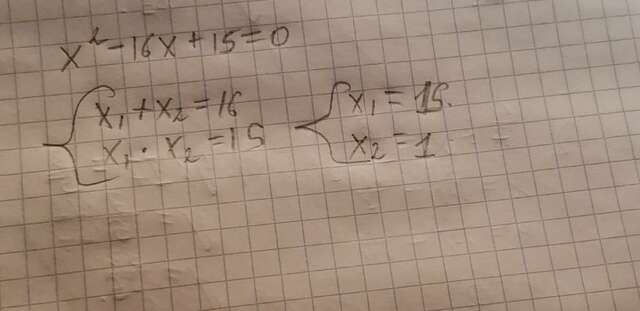 x² - 16x + 15 = 0
x₁ + x₂ = 16
x₁ · x₂ = 15
x₁ = 15.
x₂ = 1